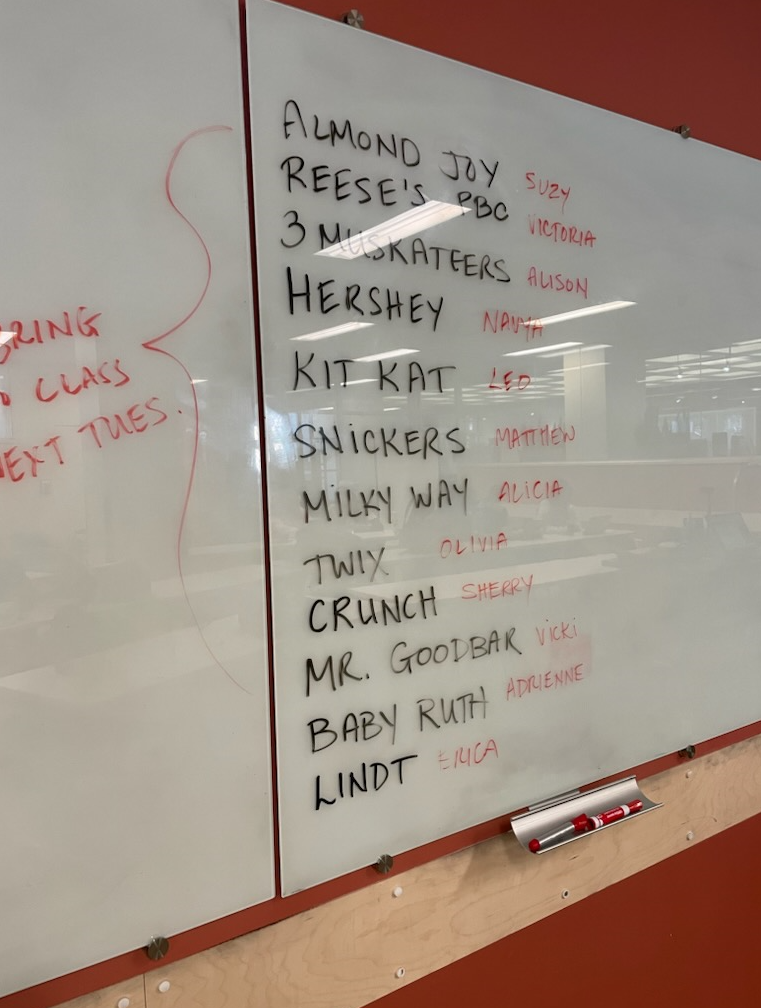 BRING
CLASS
NEXT TUES.
ALMOND JOY SUZY
REESE'S PBC VICTORIA
3 MUSKATEERS ALISON
HERSHEY NAVYA
KIT KAT LEO
SNICKERS MATTHEW
MILKY WAY ALICIA
TWIX OLIVIA
CRUNCH SHERRY
MR. GOODBAR Vicki
BABY RUTH ADRIENNE
LINDT ERICA